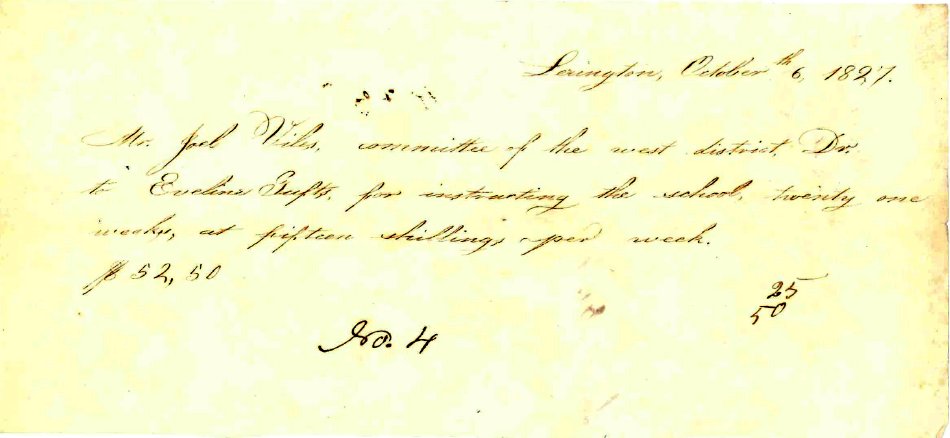 Lexington, October 6th, 1827.
Mr. Joel Viles, committee of the west district, Dr.
to Eveline Tufts, for instructing the school, twenty one
weeks, at fifteen shillings per week.
$ 52,50
25
50
No. 4